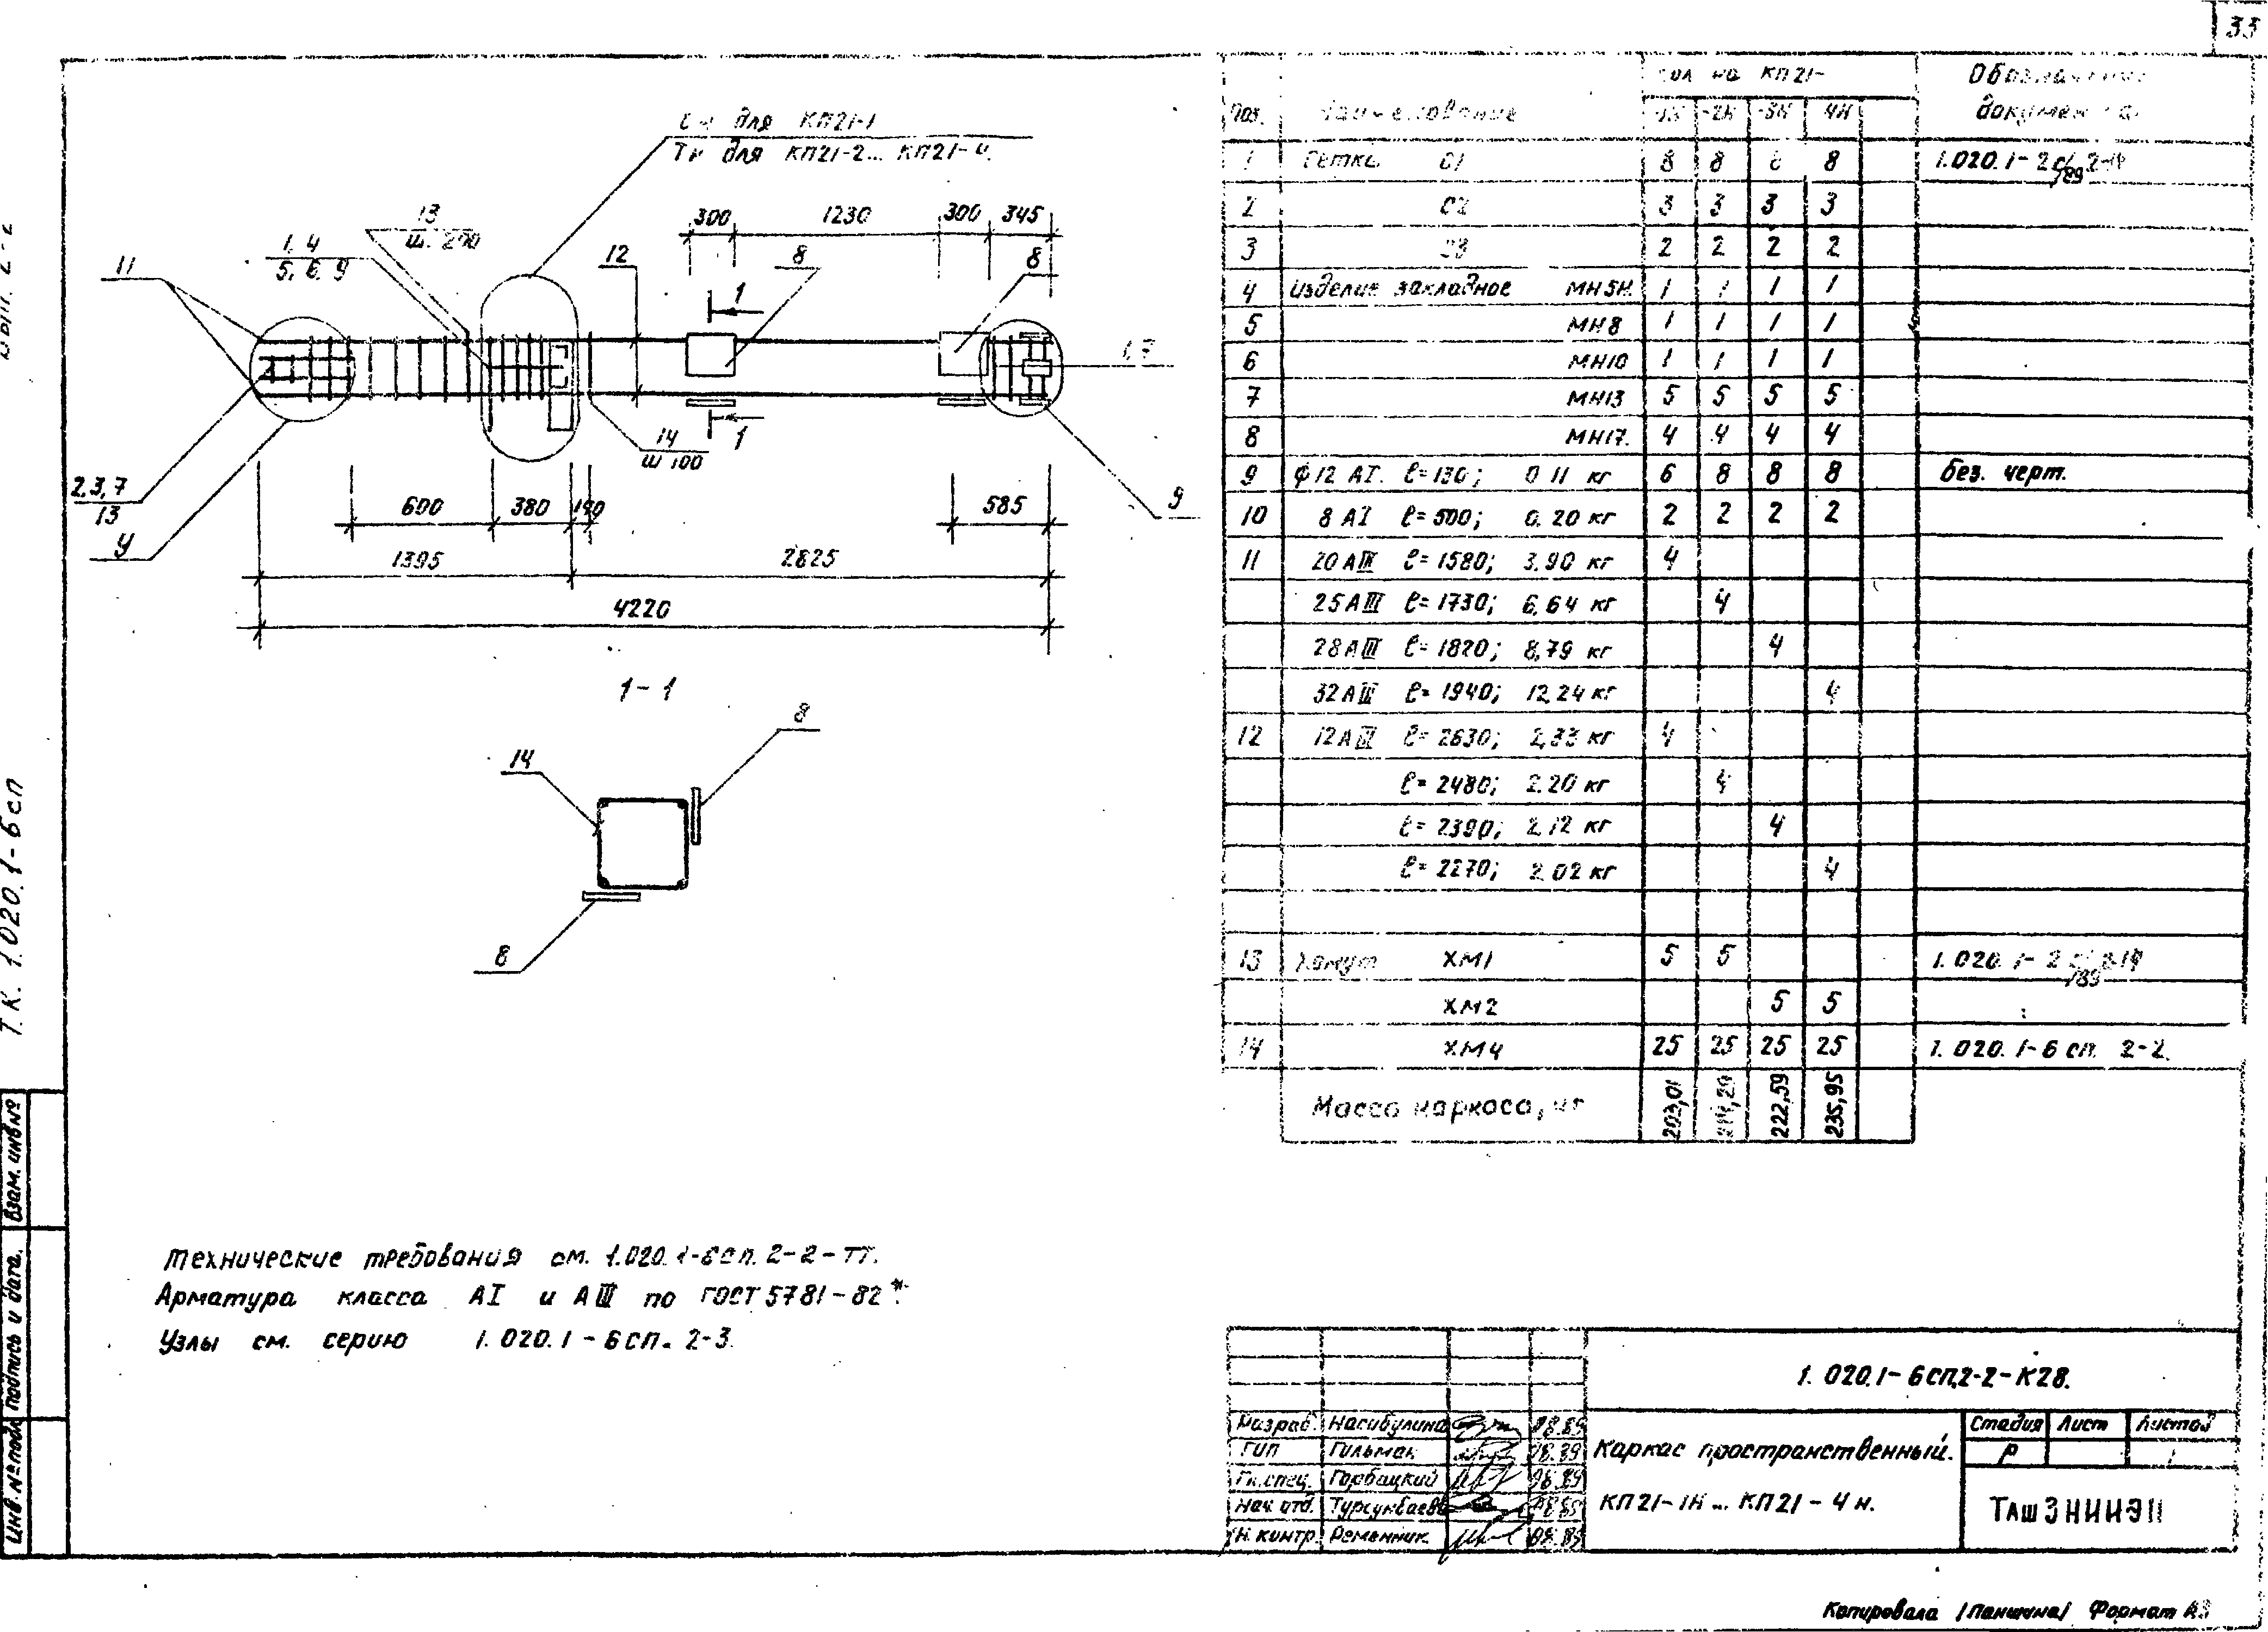 33
для КП21-1
Тн для КП21-2... КП21-4.
13
ш. 200
1. 4
5, 6. 9
11
12
300
1230
300
345
8
8
1
1
1,7
14
ш 100
2,3,7
13
У
9
600
380
585
1395
2825
4220
1-1
14
8
8
Технические требования см. 1.020.1-6сп. 2-2-ТТ.
Арматура класса АI и АIII по ГОСТ 5781-82*.
Узлы см. серию 1.020.1-6сп. 2-3.
Т.К. 1.020.1-6сп
Взам. инв№
Подпись и дата.
Инв.№подл
Поз. Наименование Кол на КП21- Обозначение документа
-1Н -2Н -3Н 4Н
1 Сетка С1 8 8 8 8 1.020.1-2с/89
2 С2 3 3 3 3
3 С3 2 2 2 2
4 Изделие закладное МН5Н. 1 1 1 1
5 МН8 1 1 1 1
6 МН10 1 1 1 1
7 МН13 5 5 5 5
8 МН17. 4 4 4 4
9 ф12 АI. ℓ=130; 0 11 кг 6 8 8 8 без. черт.
10 8 АI ℓ=500; 0.20 кг 2 2 2 2
11 20 АIII ℓ=1580; 3.90 кг 4
25 АIII ℓ=1730; 6.64 кг 4
28 АIII ℓ=1820; 8,79 кг 4
32 АIII ℓ=1940; 12,24 кг 4
12 12 АIII ℓ=2630; 2,33 кг 4
ℓ=2480; 2.20 кг 4
ℓ=2390; 2,12 кг 4
ℓ=2270; 2.02 кг 4
13 Хомут ХМ1 5 5 1.020.1-2с/89
ХМ2 5 5
14 ХМ4 25 25 25 25 1.020.1-6сп. 2-2.
Масса каркаса, кг 203,01 222,59 235,95
1.020.1-6СП.2-2-К28.
Разраб. Насибулина 08.89
ГИП Гильман 08.89
Гл.спец. Горбацкий 08.89
Нач. отд. Турсунбаев
Н.контр. Ременник. 08.89
Каркас пространственный.
КП21-1Н... КП21-4н.
Стадия Лист Листов
Р 1
ТашЗНИИЭП
Копировала /Паншина/ Формат А3